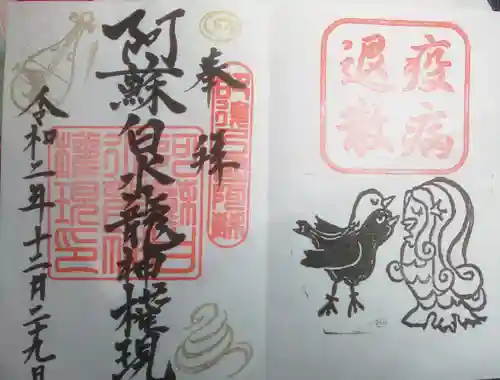 疫病
退散
奉拝
阿蘇白水龍神権現
令和二年十二月二十九日